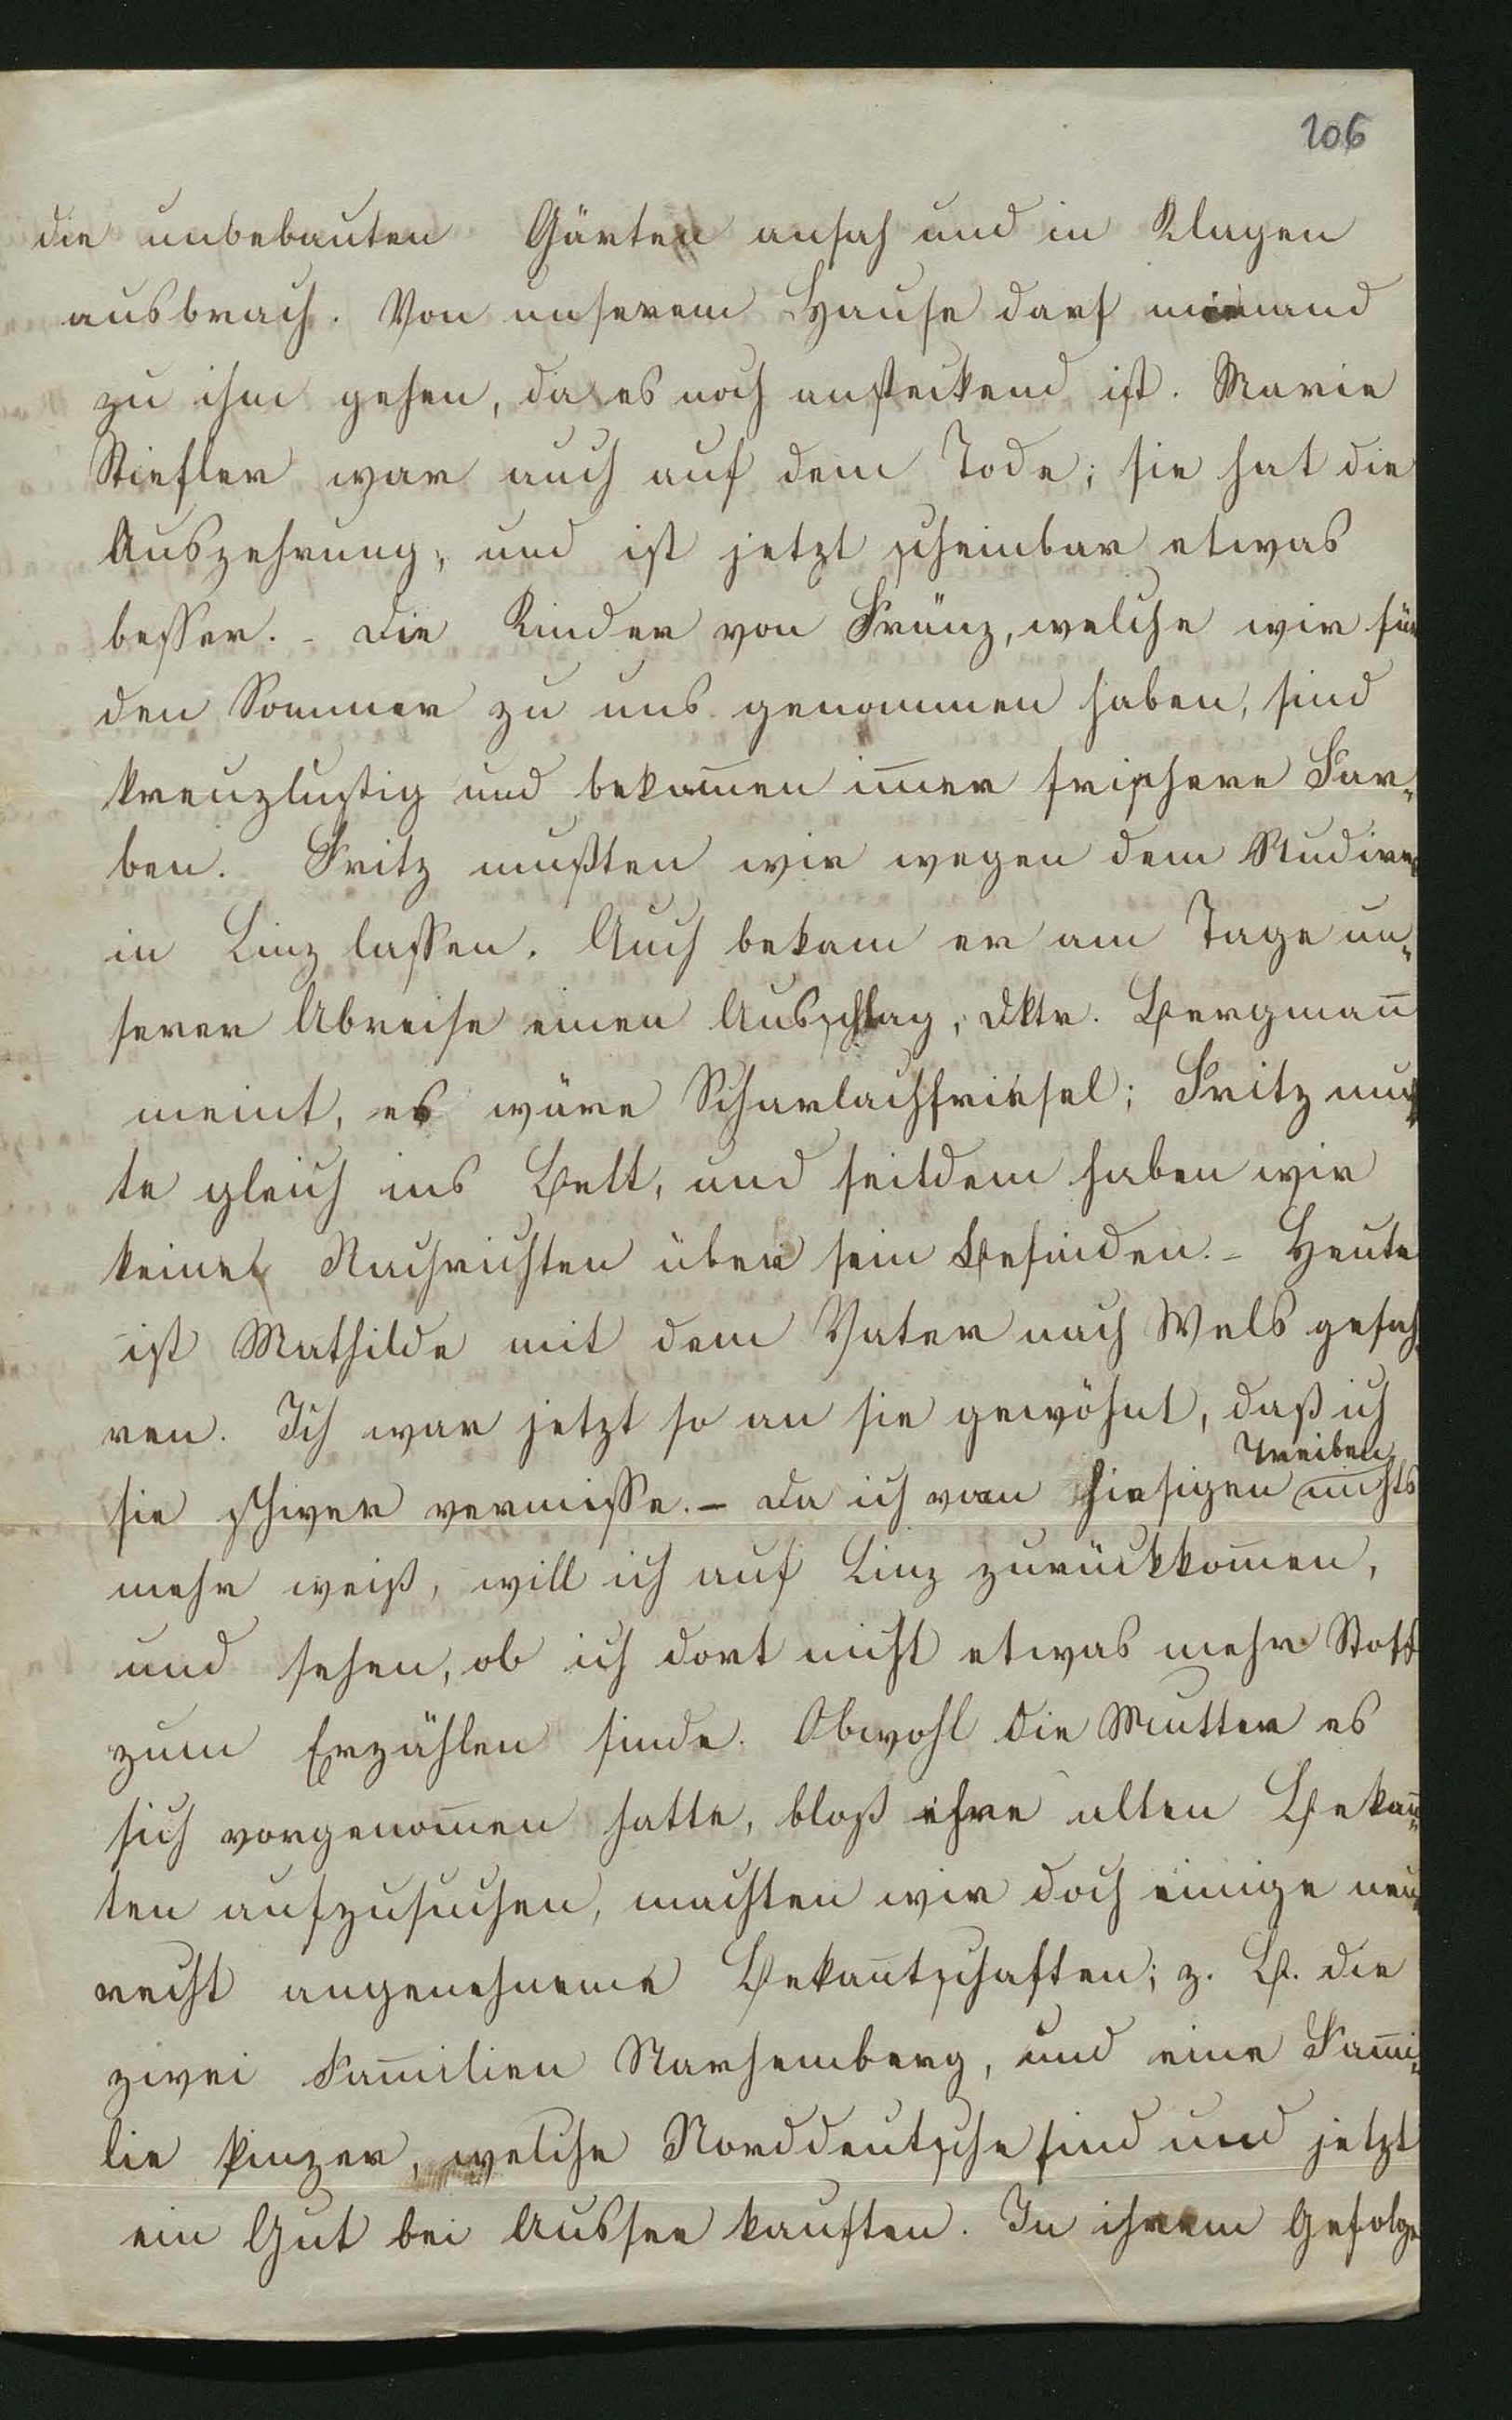 106
die unbebauten Gärten ansah und in Klagen
ausbrach. Von unserem Hause darf niemand
zu ihm gehen, da es noch ansteckend ist. Marie
Stiefler war auch auf dem Tode; sie hat die
Auszehrung, und ist jetzt scheinbar etwas
besser. - Die Kinder von Fränz, welche wir für
den Sommer zu uns genommen haben, sind
kreuzlustig und bekom̅en im̅er frischere Far„
ben. Fritz mußten wir wegen dem Studiren
in Linz lassen. Auch bekam er am Tage un„
serer Abreise einen Ausschlag, Dktr. Bergman̅
meint, es wäre Scharlachfriesel; Fritz muß
te gleich ins Bett, und seitdem haben wir
keine Nachrichten über sein Befinden. - Heute
ist Mathilde mit dem Vater nach Wels gefah„
ren. Ich war jetzt so an sie gewöhnt, daß ich
Treiben
sie schwer vermisse. - Da ich vom hiesigen nichts
mehr weiß, will ich auf Linz zurückkom̅en,
und sehen, ob ich dort nicht etwas mehr Stoff
zum Erzählen finde. Obwohl die Mutter es
sich vorgenom̅en hatte, bloß ihre alten Bekan̅„
ten aufzusuchen, machten wir doch einige neue
recht angenehmeme Bekan̅tschaften; z. B. die
zwei Fam̅ilien Starhemberg, und eine Fam̅i„
lie Kinzer, welche Norddeutsche sind und jetzt
ein Gut bei Aussee kauften. In ihrem Gefolge